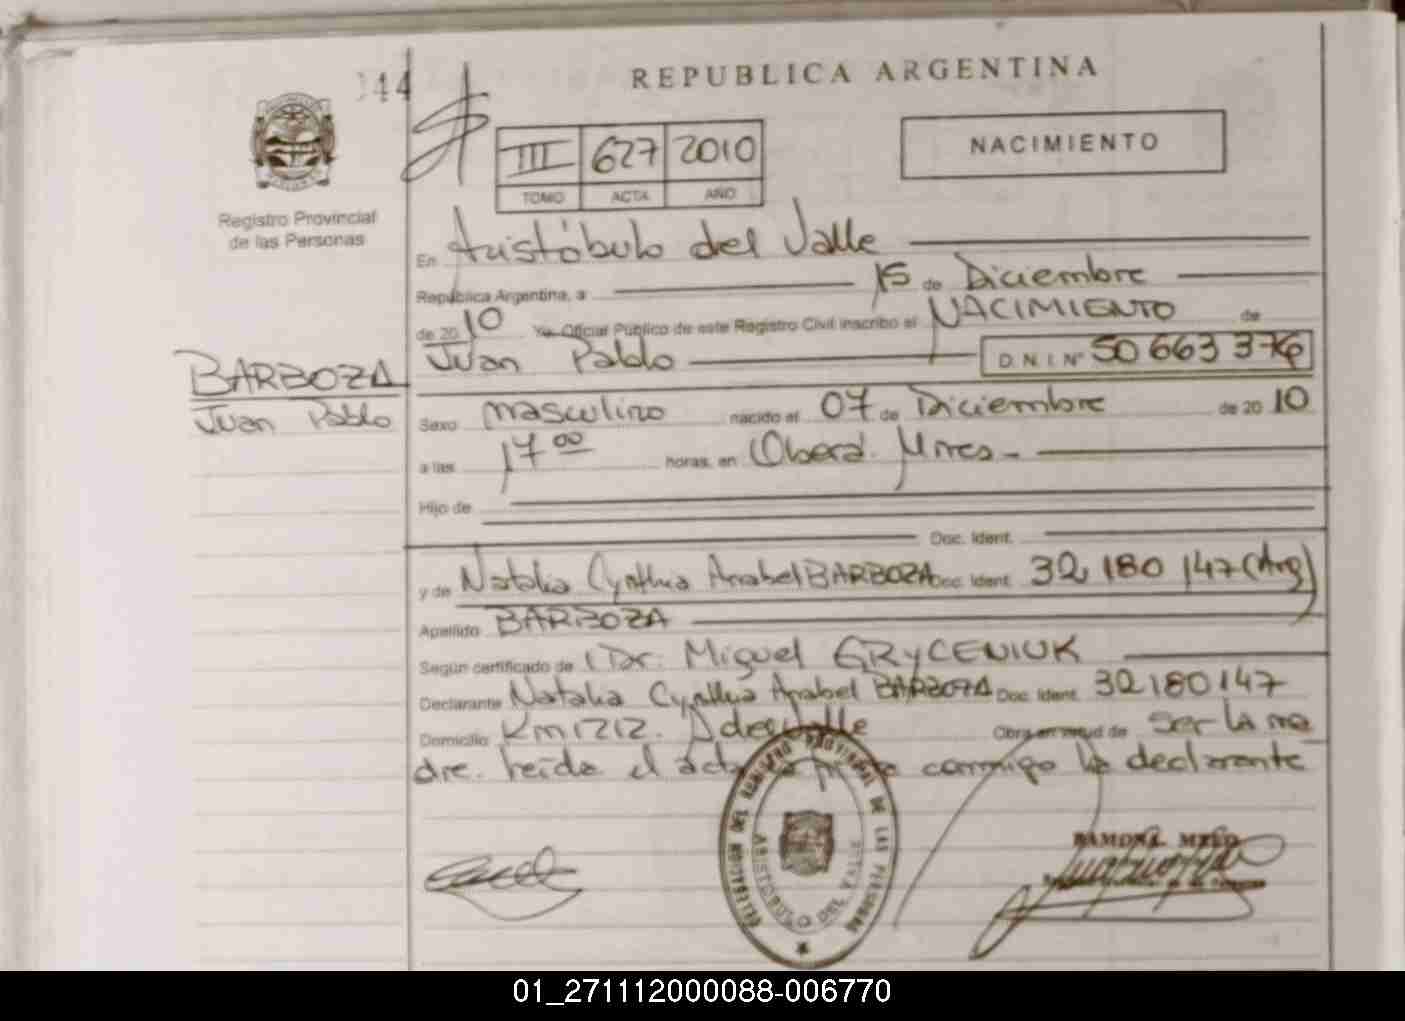 144
REPUBLICA ARGENTINA
NACIMIENTO
III 627 2010
TOMO ACTA AÑO
Registro Provincial
de las Personas
En Aristóbulo del Valle
República Argentina, a 15 de Diciembre
de 2010 Yo Oficial Público de este Registro Civil inscribo el NACIMIENTO de
Juan Pablo D.N.I. Nº 50 663 376
BARBOZA
Juan Pablo
Sexo masculino nacido el 07 de Diciembre de 2010
a las 17 00 horas, en Oberá. Mnes-
Hijo de
Doc. Ident.
y de Natalia Cynthia Anabel BARBOZA Doc. Ident. 32 180 147 (Arg)
Apellido BARBOZA
Según certificado de Dr. Miguel GRYCENIUK
Declarante Natalia Cynthia Anabel BARBOZA Doc. Ident. 32180147
Domicilio Km 1212. A del Valle Obra en virtud de ser la ma
dre. Leída el acta la firma conmigo la declarante
DELEGACION DEL REGISTRO PROVINCIAL DE LAS PERSONAS
ARISTOBULO DEL VALLE
RAMONA MELO
01_271112000088-006770